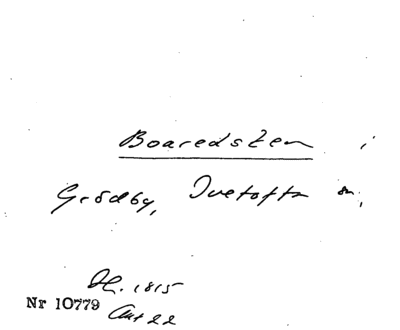 Boaredsten i
Grödby, Tvetofta sn,
Dl. 1815
Nr 10779
Ant 22